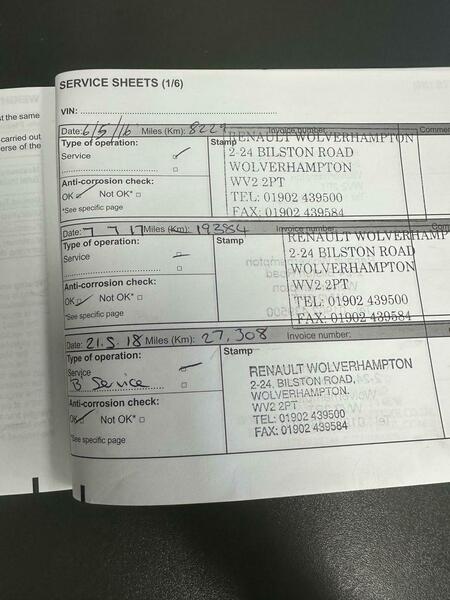 SERVICE SHEETS (1/6)
VIN:
Date: 6/5/16 Miles (Km): Invoice number:
Type of operation: Stamp
Service
Anti-corrosion check:
OK Not OK*
*See specific page
RENAULT WOLVERHAMPTON
2-24 BILSTON ROAD
WOLVERHAMPTON
WV2 2PT
TEL: 01902 439500
FAX: 01902 439584
Date: 7 7 17 Miles (Km): Invoice number:
Type of operation: Stamp
Service
Anti-corrosion check:
OK Not OK*
*See specific page
RENAULT WOLVERHAMP
2-24 BILSTON ROAD
WOLVERHAMPTON
WV2 2PT
TEL: 01902 439500
FAX: 01902 439584
Date: 21.5.18 Miles (Km): 27,308 Invoice number:
Type of operation: Stamp
Service
B Service
Anti-corrosion check:
OK Not OK*
*See specific page
RENAULT WOLVERHAMPTON
2-24, BILSTON ROAD,
WOLVERHAMPTON.
WV2 2PT
TEL: 01902 439500
FAX: 01902 439584
t the same
carried out
erse of the